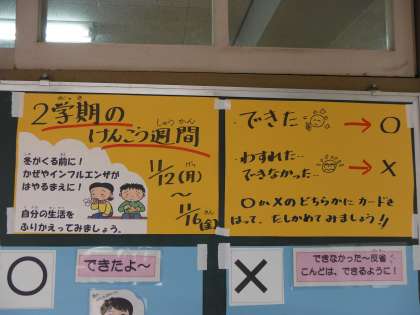 2学期の
けんこう週間
しゅうかん
冬がくる前に!
かぜやインフルエンザが
はやるまえに!
自分の生活を
ふりかえってみましょう。
11/12(月)
~
11/16(金)
できた → ○
わすれた…
できなかった… → ×
○か×のどちらかにカードを
はって、たしかめてみましょう!!
○
できたよ~
×
できなかった~反省
こんどは、できるように!